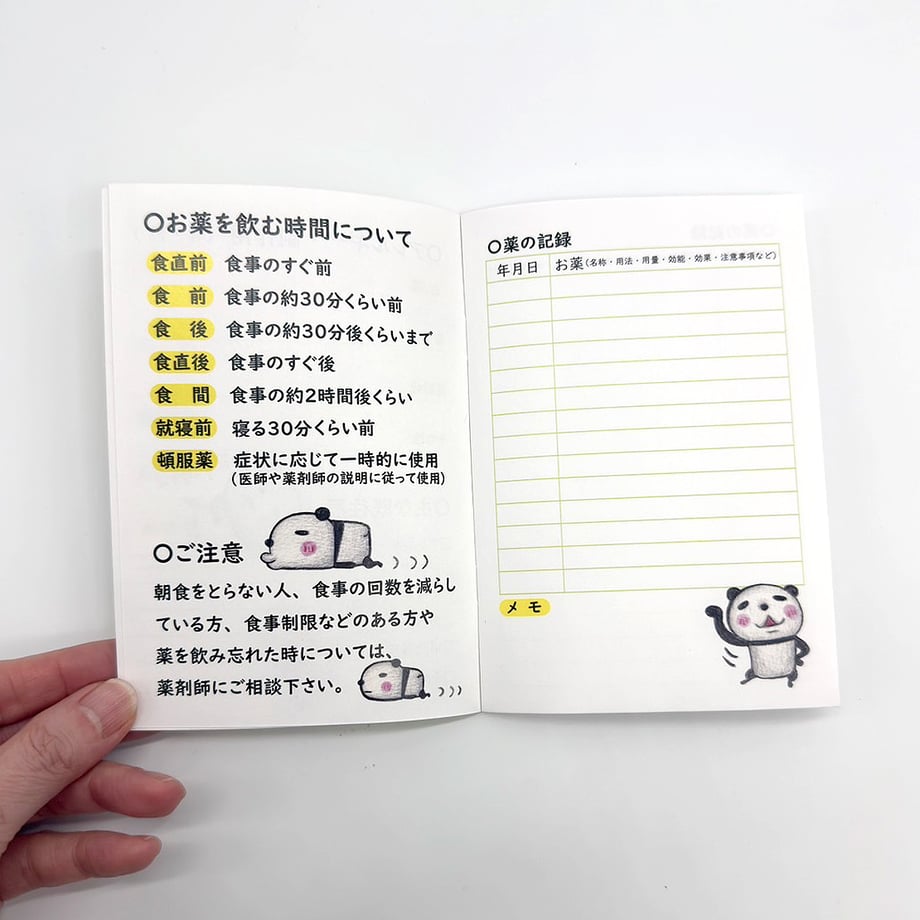 〇お薬を飲む時間について
食直前 食事のすぐ前
食 前 食事の約30分くらい前
食 後 食事の約30分後くらいまで
食直後 食事のすぐ後
食 間 食事の約2時間後くらい
就寝前 寝る30分くらい前
頓服薬 症状に応じて一時的に使用
(医師や薬剤師の説明に従って使用)
〇ご注意
朝食をとらない人、食事の回数を減らし
ている方、食事制限などのある方や
薬を飲み忘れた時については、
薬剤師にご相談下さい。
〇薬の記録
年月日 お薬(名称・用法・用量・効能・効果・注意事項など)
メモ